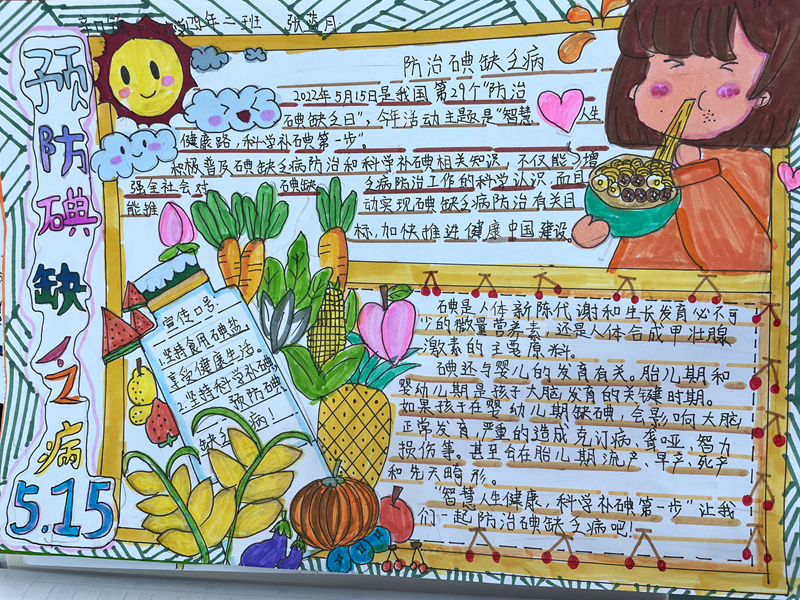 四年二班 张蓝月
预防碘缺乏病
5.15
防治碘缺乏病
2022年5月15日是我国第29个"防治
碘缺乏日"，今年活动主题是"智慧人生
健康路，科学补碘第一步"。
积极普及碘缺乏病防治和科学补碘相关知识，不仅能增
强全社会对碘缺乏病防治工作的科学认识而且
能推动实现碘缺乏病防治有关目
标，加快推进健康中国建设。
宣传口号：
坚持食用碘盐，
享受健康生活。
2.坚持科学补碘
预防碘
缺乏病！
碘是人体新陈代谢和生长发育必不可
少的微量营养素，还是人体合成甲壮腺
激素的主要原料。
碘还与婴儿的发育有关。胎儿期和
婴幼儿期是孩子大脑发育的关键时期。
如果孩子在婴幼儿期缺碘，会影响大脑
正常发育，严重的造成克汀病、聋哑、智力
损伤等。甚至会在胎儿期流产、早产、死产
和先天畸形。
"智慧人生健康，科学补碘第一步"让我
们一起防治碘缺乏病吧！